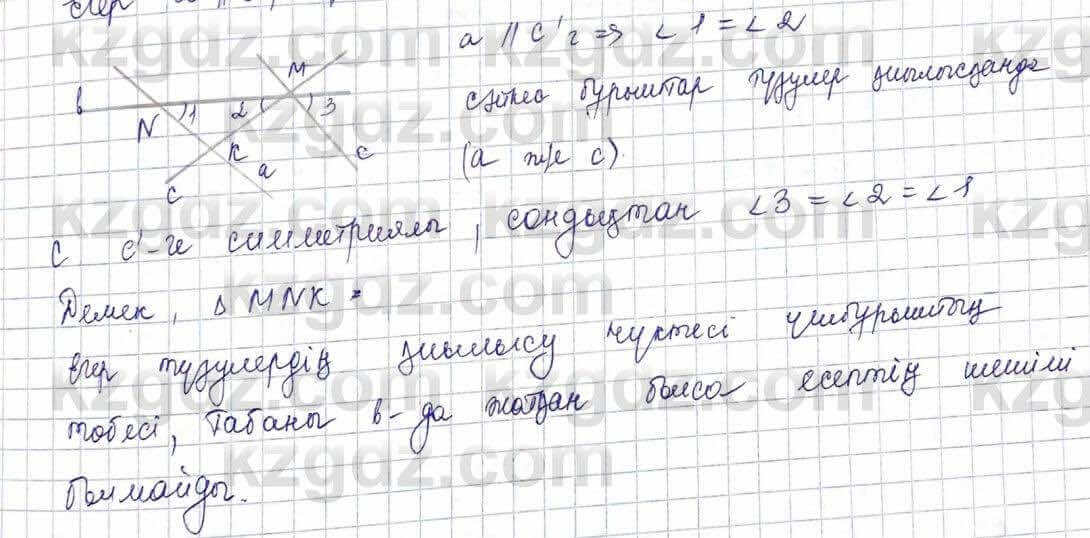 a ∥ c' г => ∠1 = ∠2
сәйкес бұрыштар түзулер қиылысқанда
(a т/е c).
b M N 1 2 3 K a c c
c c'-ге симметриялы, сондықтан ∠3 = ∠2 = ∠1
Демек, Δ MNK =
егер түзулердің қиылысу нүктесі үшбұрыштың
төбесі, табаны b-да жатқан болса есептің шешімі
болмайды.
kzgdz.com